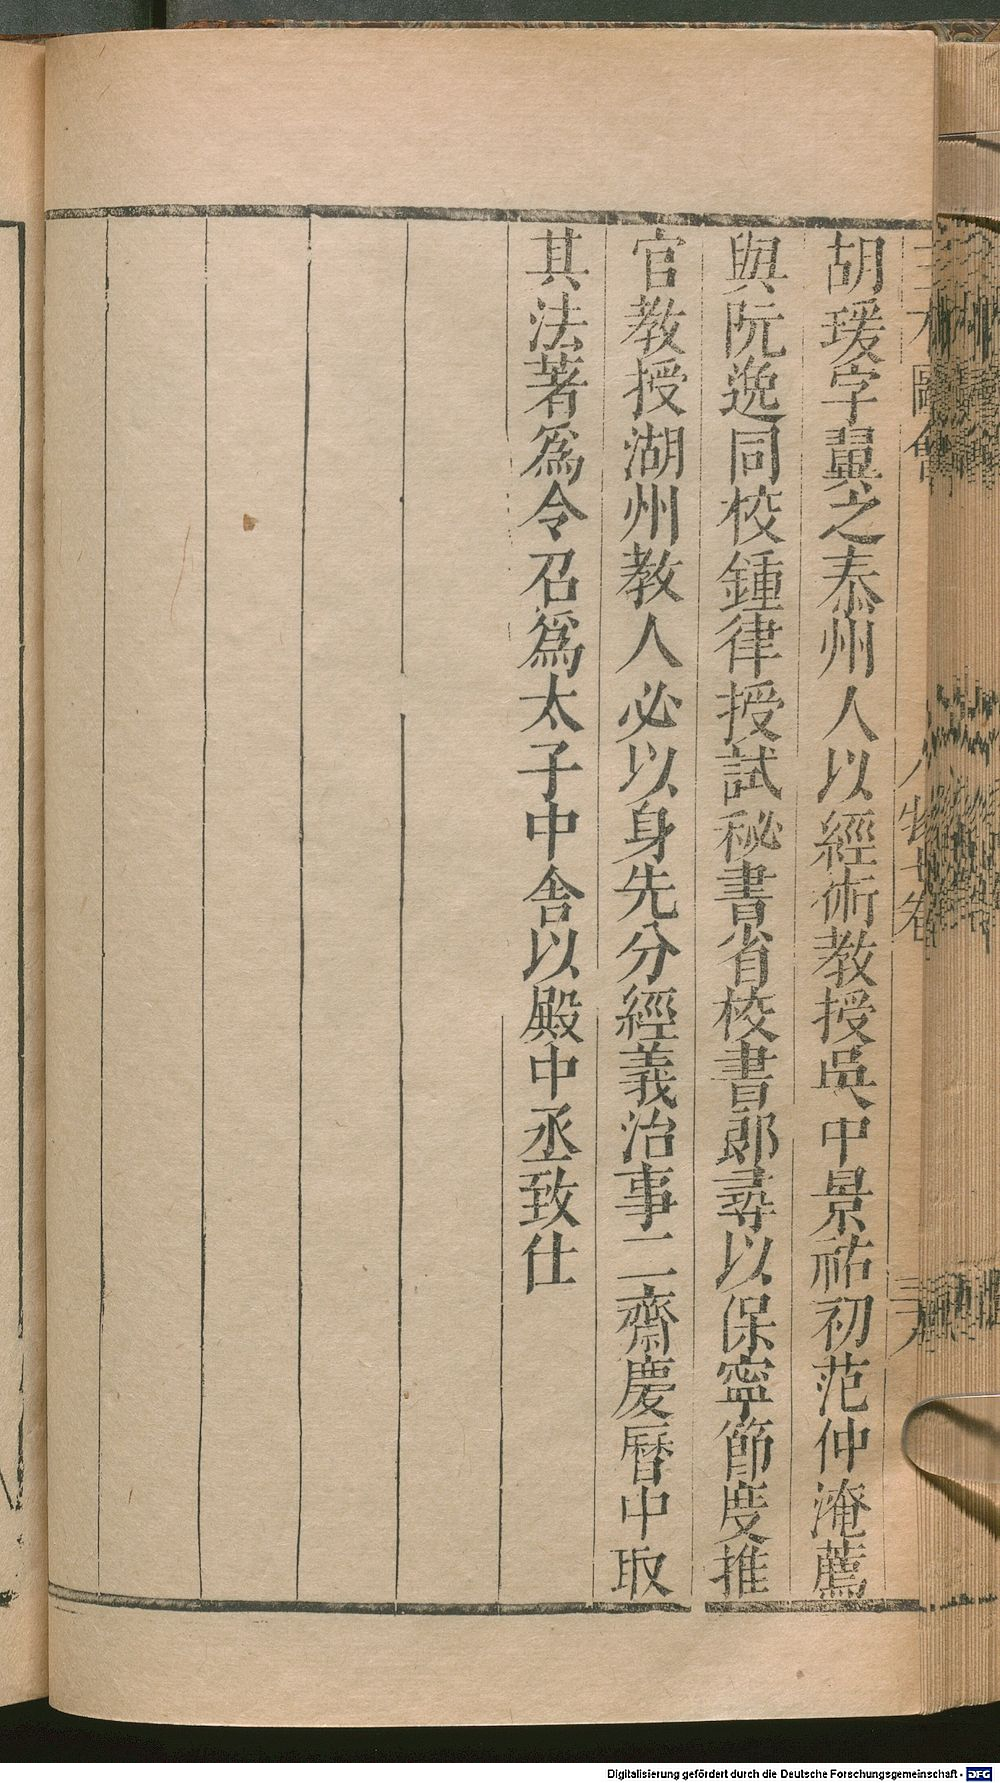 三才圖會 人物七卷 三
胡瑗字翼之泰州人以經術教授吳中景祐初范仲淹薦
與阮逸同校鍾律授試秘書省校書郎尋以保寧節度推
官教授湖州教人必以身先分經義治事二齋慶曆中取
其法著爲令召爲太子中舍以殿中丞致仕
Digitalisierung gefördert durch die Deutsche Forschungsgemeinschaft - DFG